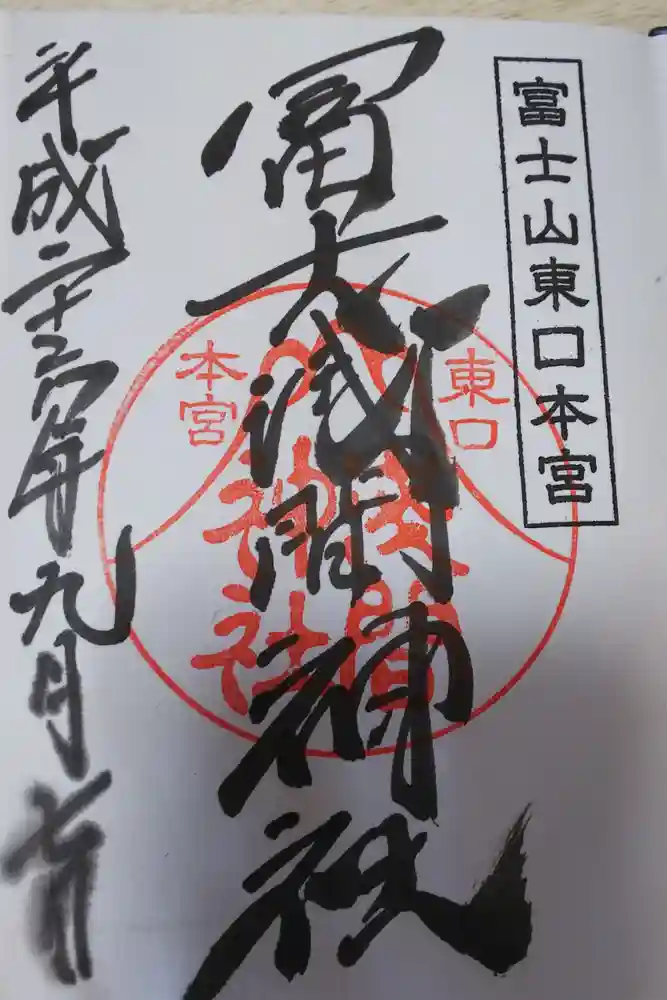 富士山東口本宮
冨士浅間神社
東口
本宮
浅間
神社
平成二十六年九月七日